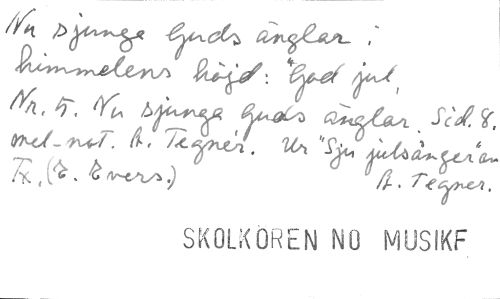 Nu sjunga Guds änglar i
himmelens höjd: "God jul,
Nr. 5. Nu sjunga Guds änglar. Sid. 8.
mel-not. A. Tegnér. Ur "Sju julsånger" av
Tx. (E. Evers.) A. Tegner.
SKOLKÖREN NO MUSIKF